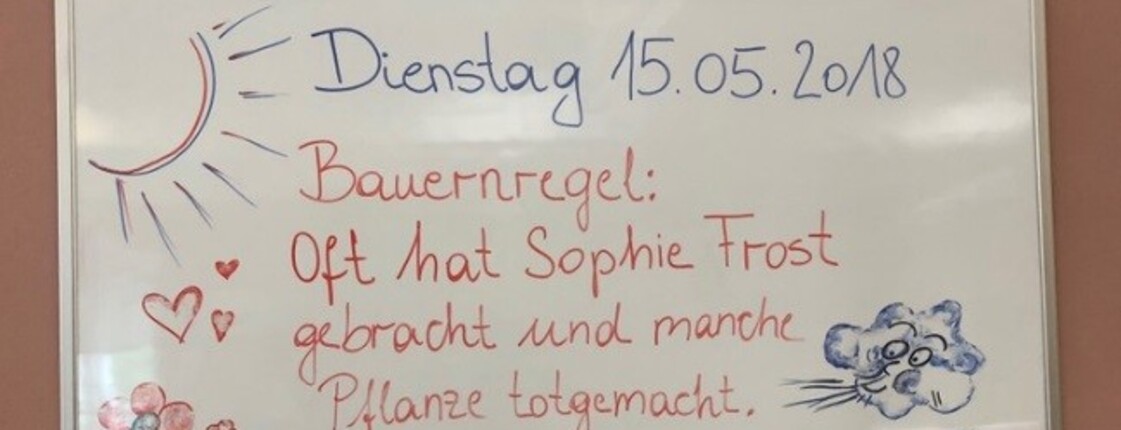 Dienstag 15.05.2018
Bauernregel:
Oft hat Sophie Frost
gebracht und manche
Pflanze totgemacht.